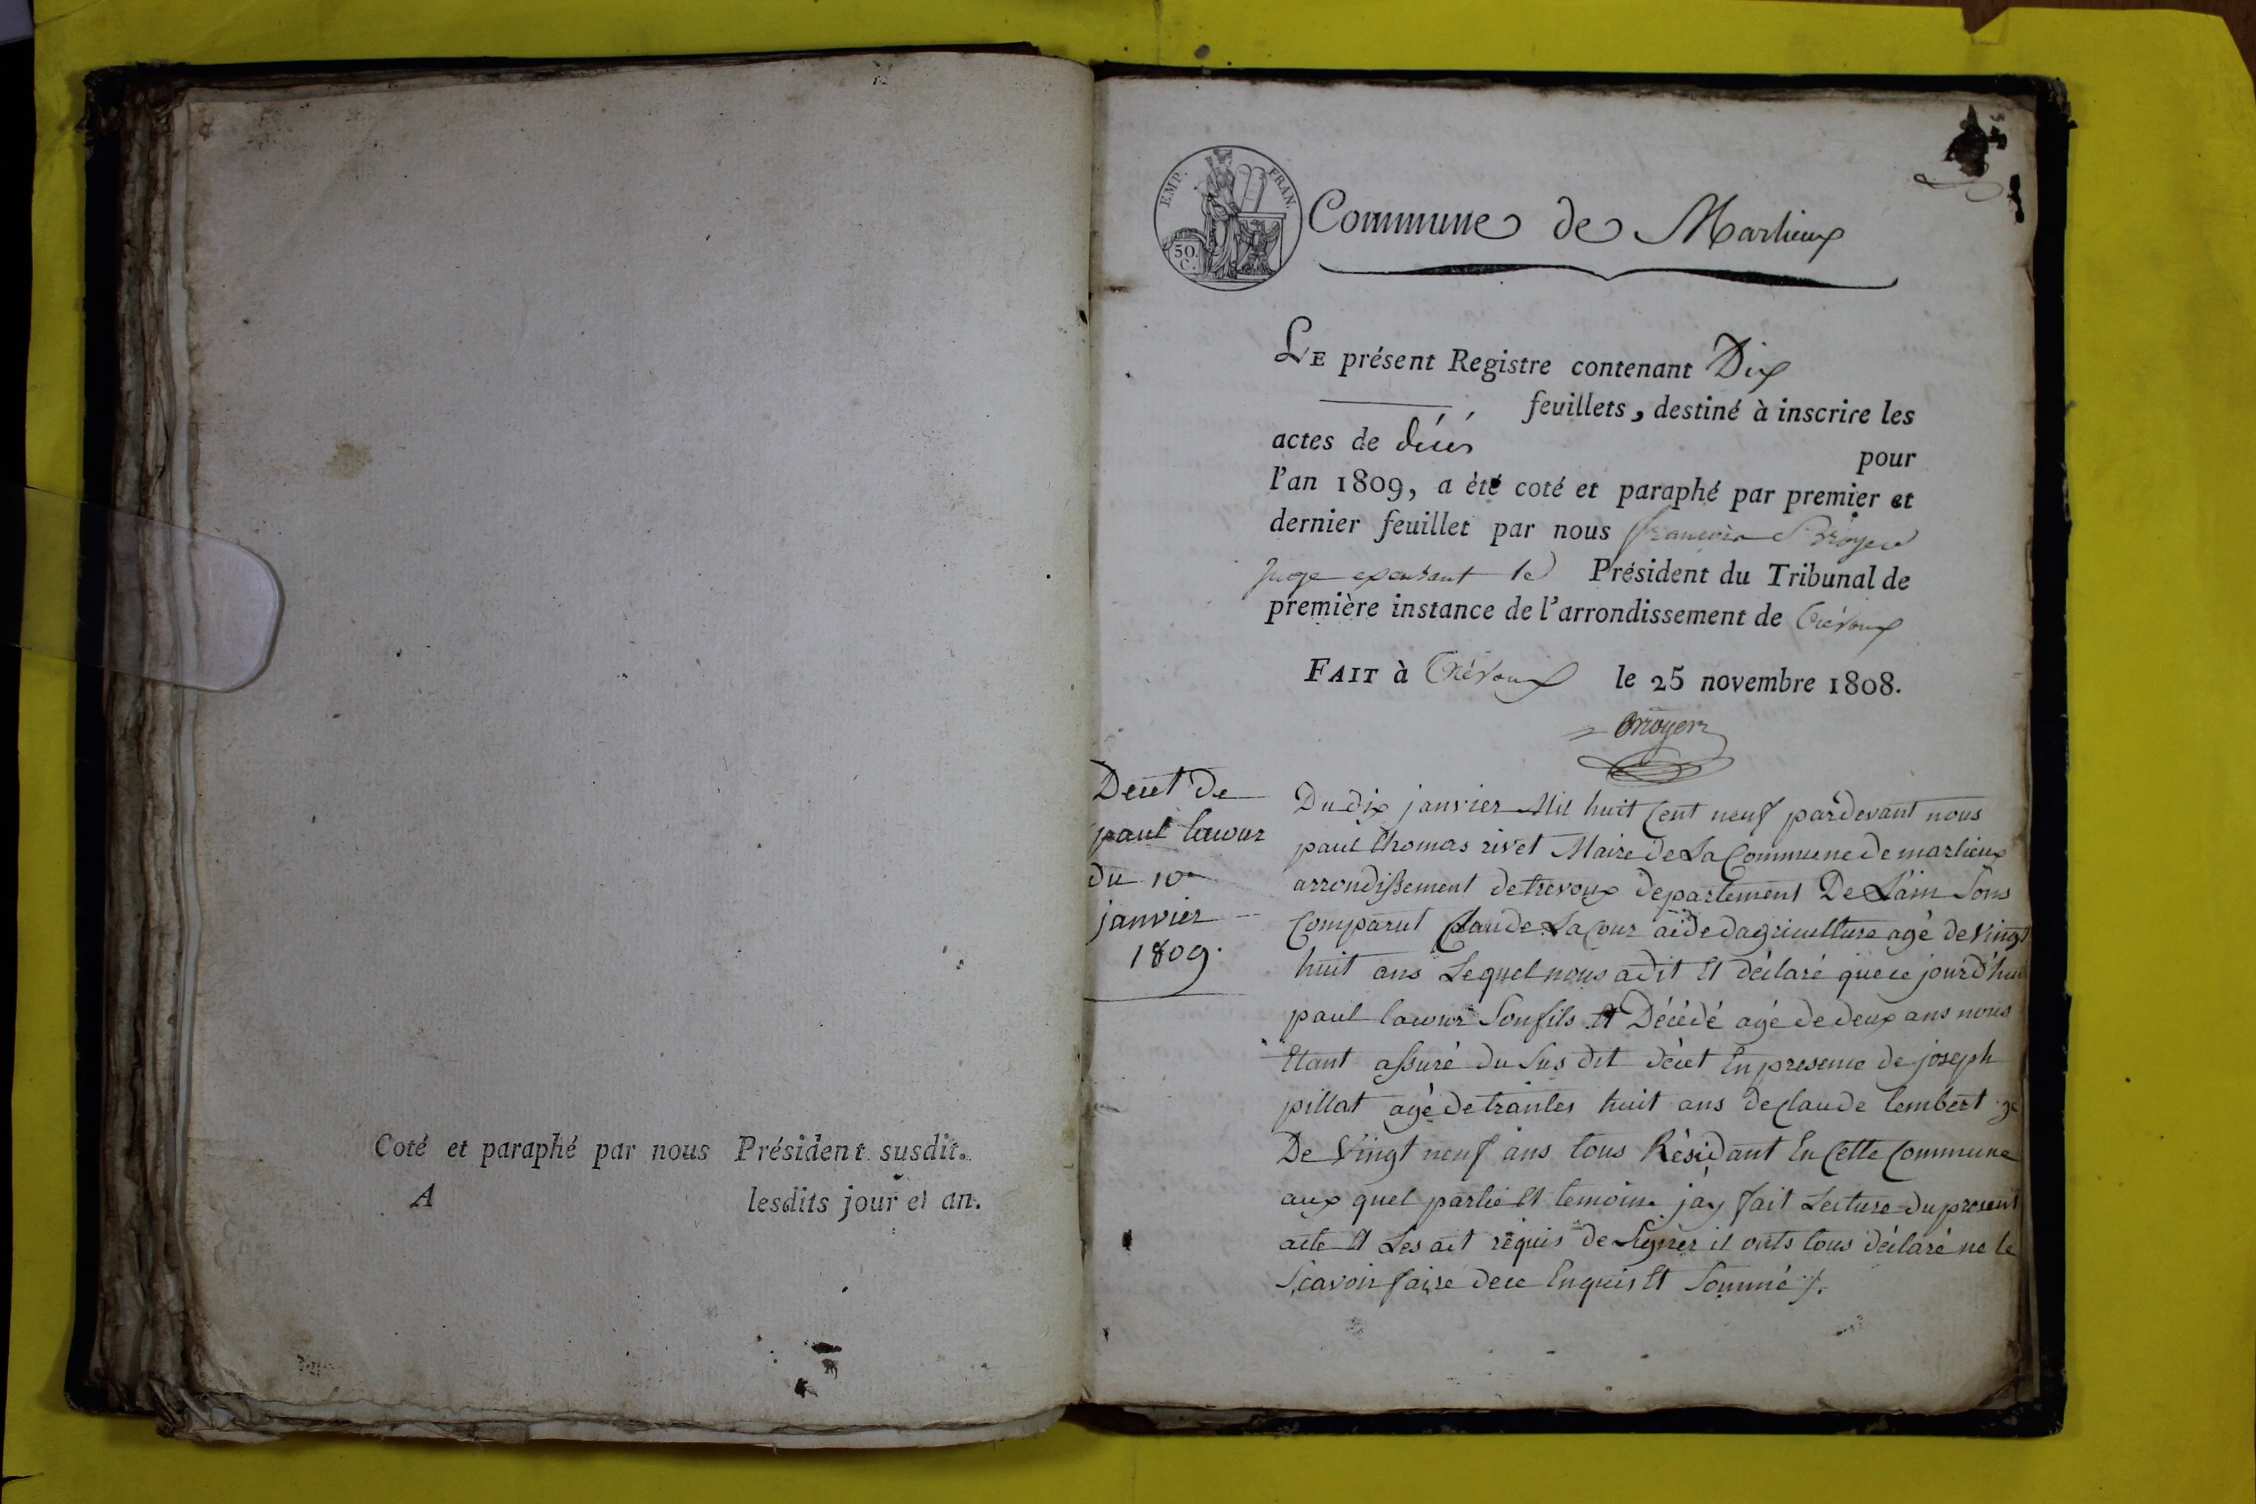 Coté et paraphé par nous Président susdit.
A lesdits jour et an.
EMP. FRAN.
50. C.
Commune de Marlieux
LE présent Registre contenant Dix
feuillets, destiné à inscrire les
actes de décès pour
l'an 1809, a été coté et paraphé par premier et
dernier feuillet par nous françois
Juge exerçant le Président du Tribunal de
première instance de l'arrondissement de Trévoux
FAIT à Trévoux le 25 novembre 1808.
Decet de
paul lacour
du 10e
janvier
1809.
Du dix janvier Mil huit Cent neuf pardevant nous
paul thomas rivet Maire de La Commune de marlieux
arrondissement de trevoux departement De L'ain Sons
Comparut Claude LaCour aide dagriculture agé de Vingt
huit ans Lequel nous a dit Et déclaré que ce jourd'hui
paul lacour Son fils Et Décédé agé de deux ans nous
Etant assuré du Sus dit décet En presence de joseph
pillat agé de trantes huit ans de Claude lembert
De Vingt neuf ans tous Résidant En Cette Commune
aux quel partie Et temoins j'ay fait Lecture du present
acte Et Les ait requis de Signer il onts tous déclaré ne le
Scavoir faire de ce Enquis Et Sommé